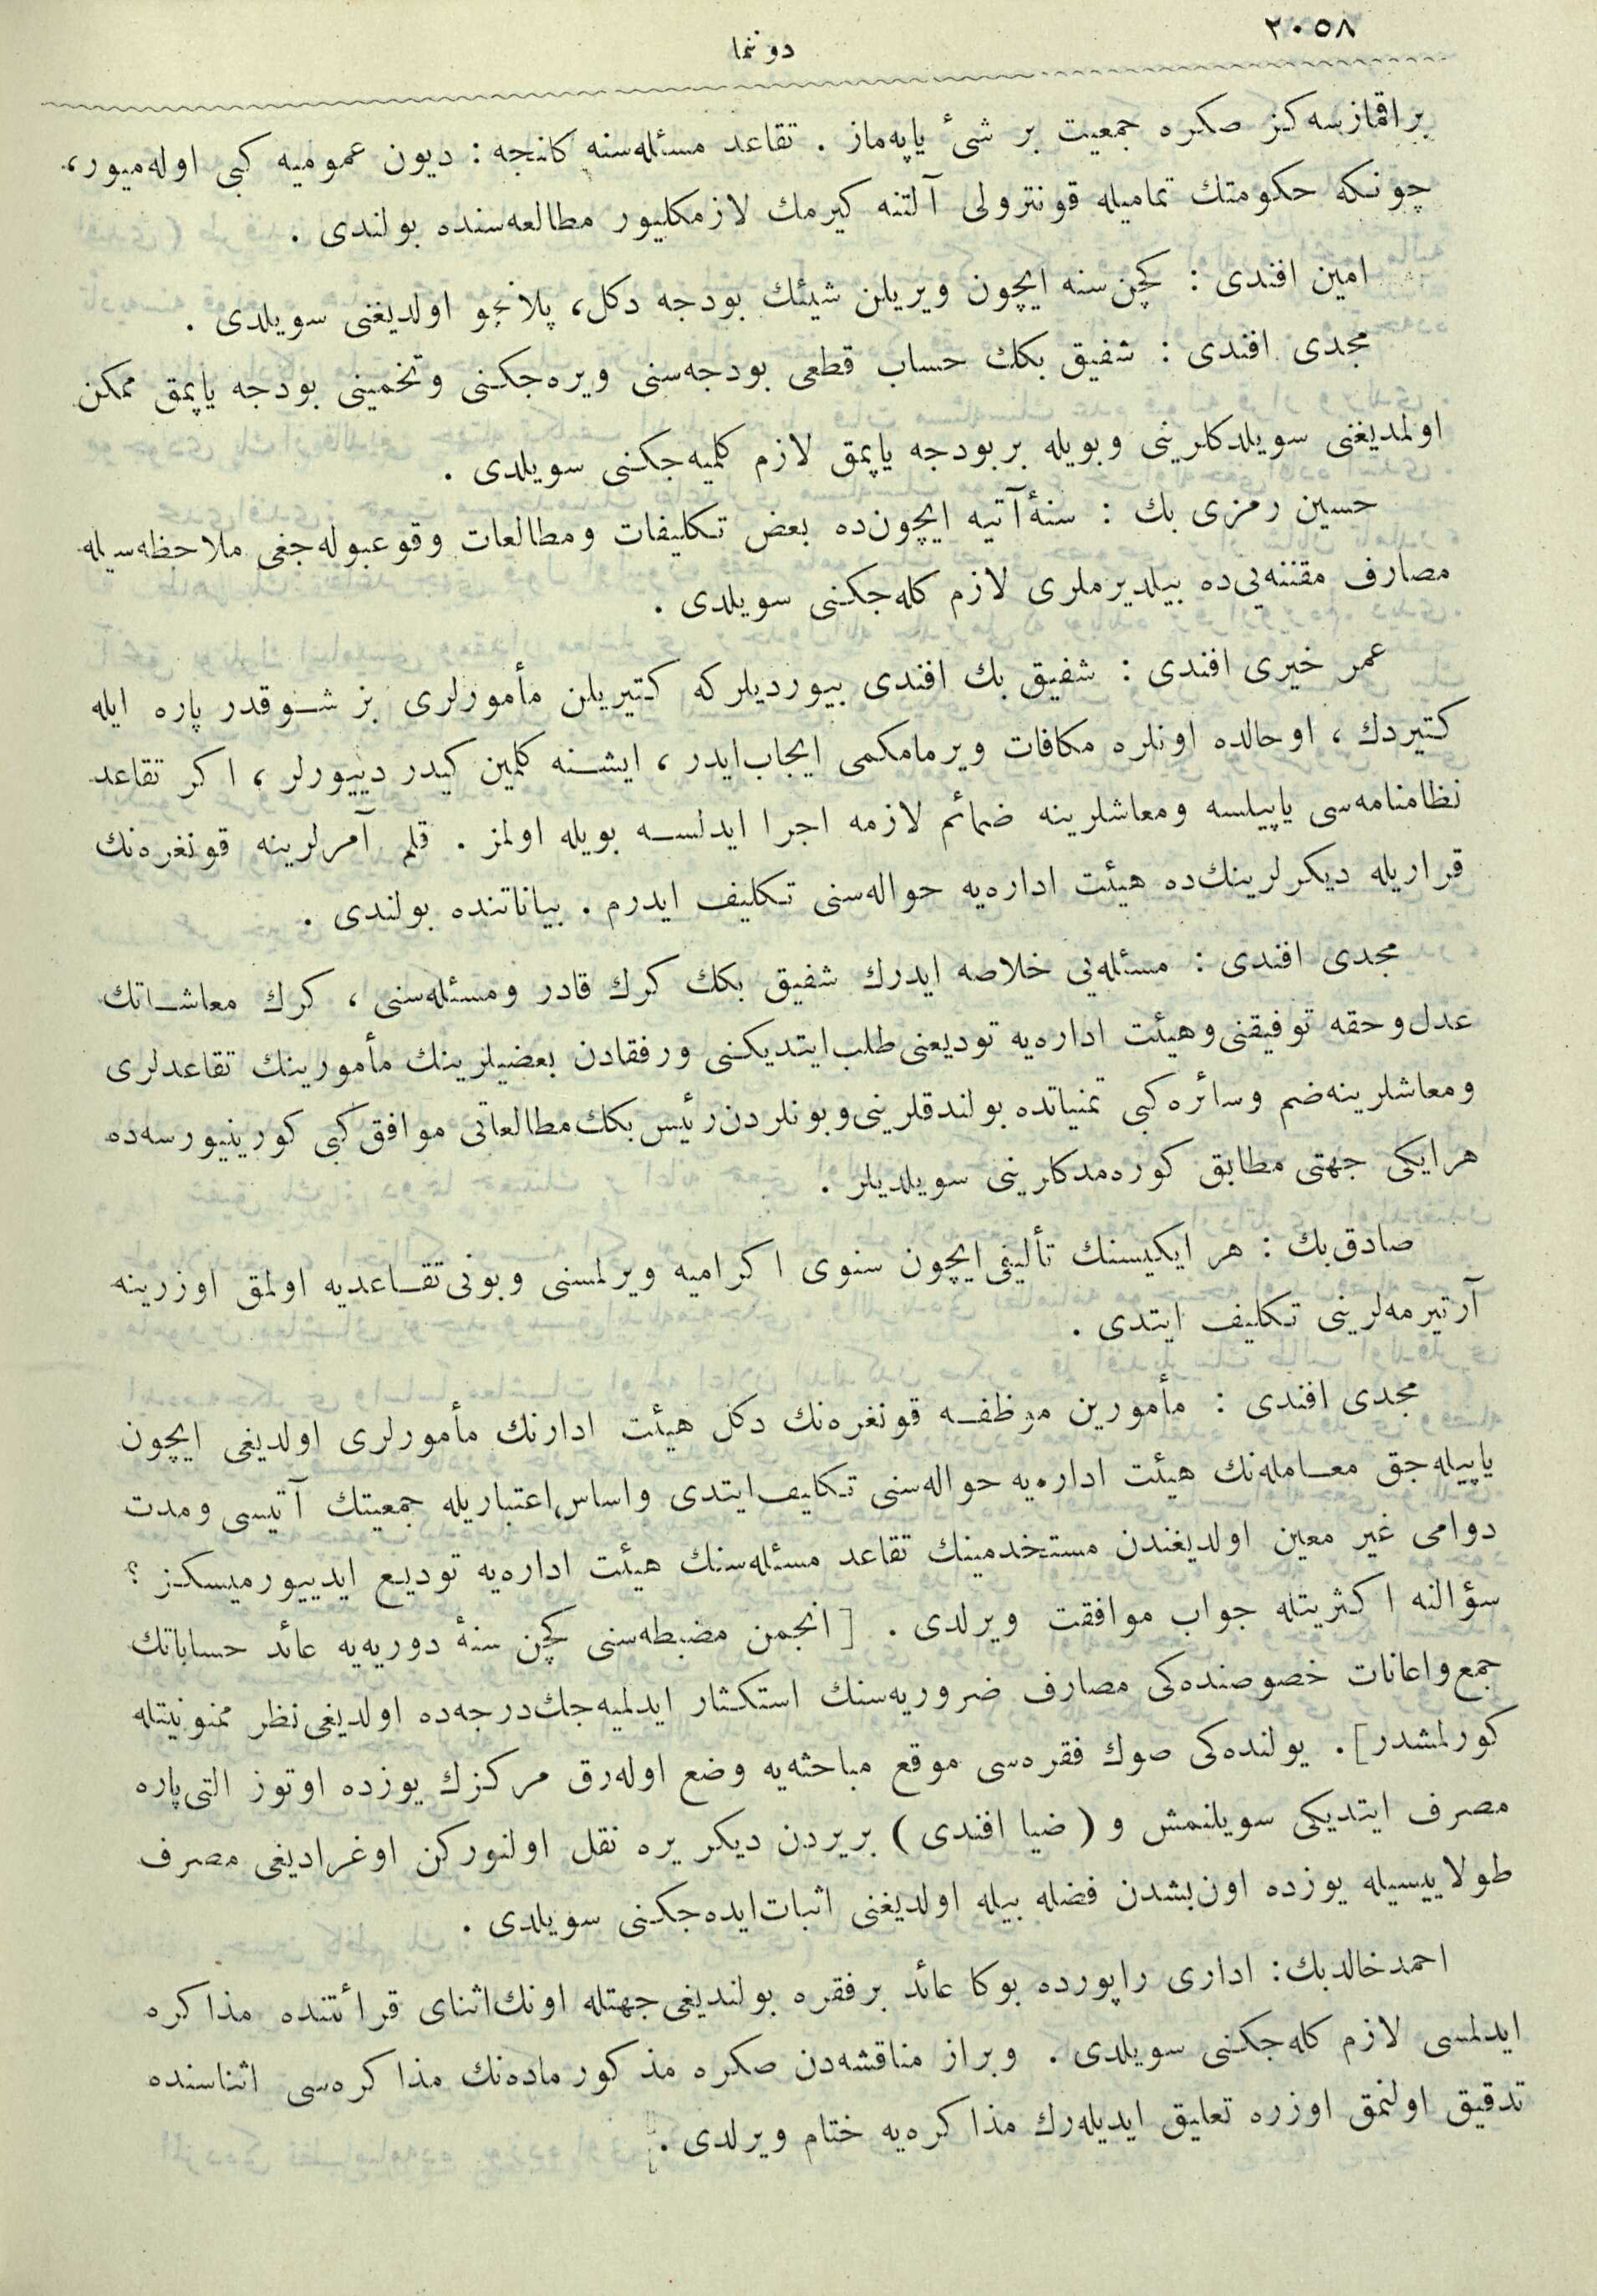 ٢٠٥٨
دوننما
براقمازسه‌كز صكره جمعيت بر شئ ياپه‌ماز . تقاعد مسئله‌سنه كلنجه : ديون عموميه كبى اوله‌ميور،
چونكه حكومتك تماميله قونترولى آلتنه كيرمك لازمكليور مطالعه‌سنده بولندى .
امين افندى : كچن سنه ايچون ويريلن شيئك بودجه دكل، پلانچو اولديغنى سويلدى .
مجدى افندى : شفيق بكك حساب قطعى بودجه‌سنى ويره‌جكنى وتخمينى بودجه ياپمق ممكن
اولمديغنى سويلدكلرينى وبويله بربودجه ياپمق لازم كلميه‌جكنى سويلدى .
حسين رمزى بك : سنهٔ آتيه ايچون‌ده بعض تكليفات ومطالعات وقوعبوله‌جغى ملاحظه‌سيله
مصارف مقننه‌يى‌ده بيلديرملرى لازم كله‌جكنى سويلدى .
عمر خيرى افندى : شفيق بك افندى بيورديلركه كتيريلن مأمورلرى بز شوقدر پاره ايله
كتيردك ، اوحالده اونلره مكافات ويرمامكمى ايجاب‌ايدر ، ايشنه كلمين كيدر دييورلر ، اكر تقاعد
نظامنامه‌سى ياپيلسه ومعاشلرينه ضمائم لازمه اجرا ايدلسه بويله اولمز . قلم آمرلرينه قونغره‌نك
قراريله ديكرلرينك‌ده هيئت اداره‌يه حواله‌سنى تكليف ايدرم . بياناتنده بولندى .
مجدى افندى : مسئله‌يى خلاصه ايدرك شفيق بكك كرك قادر ومسئله‌سنى ، كرك معاشاتك
عدل‌وحقه توفيقنى‌وهيئت اداره‌يه توديعنى‌طلب‌ايتديكنى ورفقادن بعضيلرينك مأمورينك تقاعدلرى
ومعاشلرينه‌ضم وسائره كبى تمنياتده بولندقلرينى‌وبونلردن‌رئيس‌بكك‌مطالعاتى موافق‌كبى كورينيورسه‌ده
هرايكى جهتى مطابق كوره‌مدكلرينى سويلديلر .
صادق‌بك : هر ايكيسنك تأليفى‌ايچون سنوى اكراميه ويرلمسنى وبونى‌تقاعديه اولمق اوزرينه
آرتيرمه‌لرينى تكليف ايتدى .
مجدى افندى : مأمورين موظفه قونغره‌نك دكل هيئت ادارنك مأمورلرى اولديغى ايچون
ياپيله‌جق معامله‌نك هيئت اداره‌يه حواله‌سنى تكليف‌ايتدى واساس‌اعتباريله جمعيتك آتيسى ومدت
دوامى غير معين اولديغندن مستخدمينك تقاعد مسئله‌سنك هيئت اداره‌يه توديع ايدييورميسكز ؟
سؤالنه اكثريتله جواب موافقت ويرلدى . [ انجمن مضبطه‌سنى كچن سنهٔ دوريه‌يه عائد حساباتك
جمع‌واعانات خصوصنده‌كى مصارف ضروريه‌سنك استكثار ايدلميه‌جك‌درجه‌ده اولديغى‌نظر ممنونيتله
كورلمشدر ]. يولنده‌كى صوك فقره‌سى موقع مباحثه‌يه وضع اوله‌رق مركزك يوزده اوتوز التى‌پاره
مصرف ايتديكى سويلنمش و ( ضيا افندى ) بريردن ديكر يره نقل اولنوركن اوغراديغى مصرف
طولاييسيله يوزده اون‌بشدن فضله بيله اولديغنى اثبات‌ايده‌جكنى سويلدى .
احمدخالدبك : ادارى راپورده بوكا عائد برفقره بولنديغى‌جهتله اونك‌اثناى قرائتنده مذاكره
ايدلمسى لازم كله‌جكنى سويلدى . وبراز مناقشه‌دن صكره مذكور ماده‌نك مذاكره‌سى اثناسنده
تدقيق اولنمق اوزره تعليق ايديله‌رك مذاكره‌يه ختام ويرلدى .